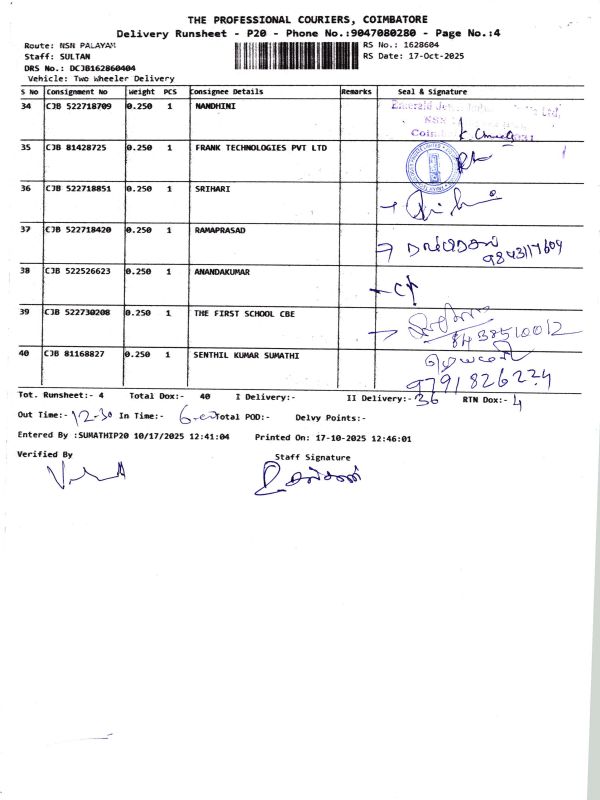 THE PROFESSIONAL COURIERS, COIMBATORE
Delivery Runsheet - P20 - Phone No.:9047080280 - Page No.:4
Route: NSN PALAYAM RS No.: 1628604
Staff: SULTAN RS Date: 17-Oct-2025
DRS No.: DCJB162860404
Vehicle: Two Wheeler Delivery
S No Consignment No Weight PCS Consignee Details Remarks Seal & Signature
34 CJB 522718709 0.250 1 NANDHINI
35 CJB 81428725 0.250 1 FRANK TECHNOLOGIES PVT LTD
36 CJB 522718851 0.250 1 SRIHARI
37 CJB 522718420 0.250 1 RAMAPRASAD
9843117609
38 CJB 522526623 0.250 1 ANANDAKUMAR
39 CJB 522730208 0.250 1 THE FIRST SCHOOL CBE
8438510012
40 CJB 81168827 0.250 1 SENTHIL KUMAR SUMATHI
9791826224
Tot. Runsheet:- 4 Total Dox:- 40 I Delivery:- II Delivery:- 36 RTN Dox:- 4
Out Time:- 12-30 In Time:- Total POD:- Delvy Points:-
Entered By :SUMATHIP20 10/17/2025 12:41:04 Printed On: 17-10-2025 12:46:01
Verified By Staff Signature